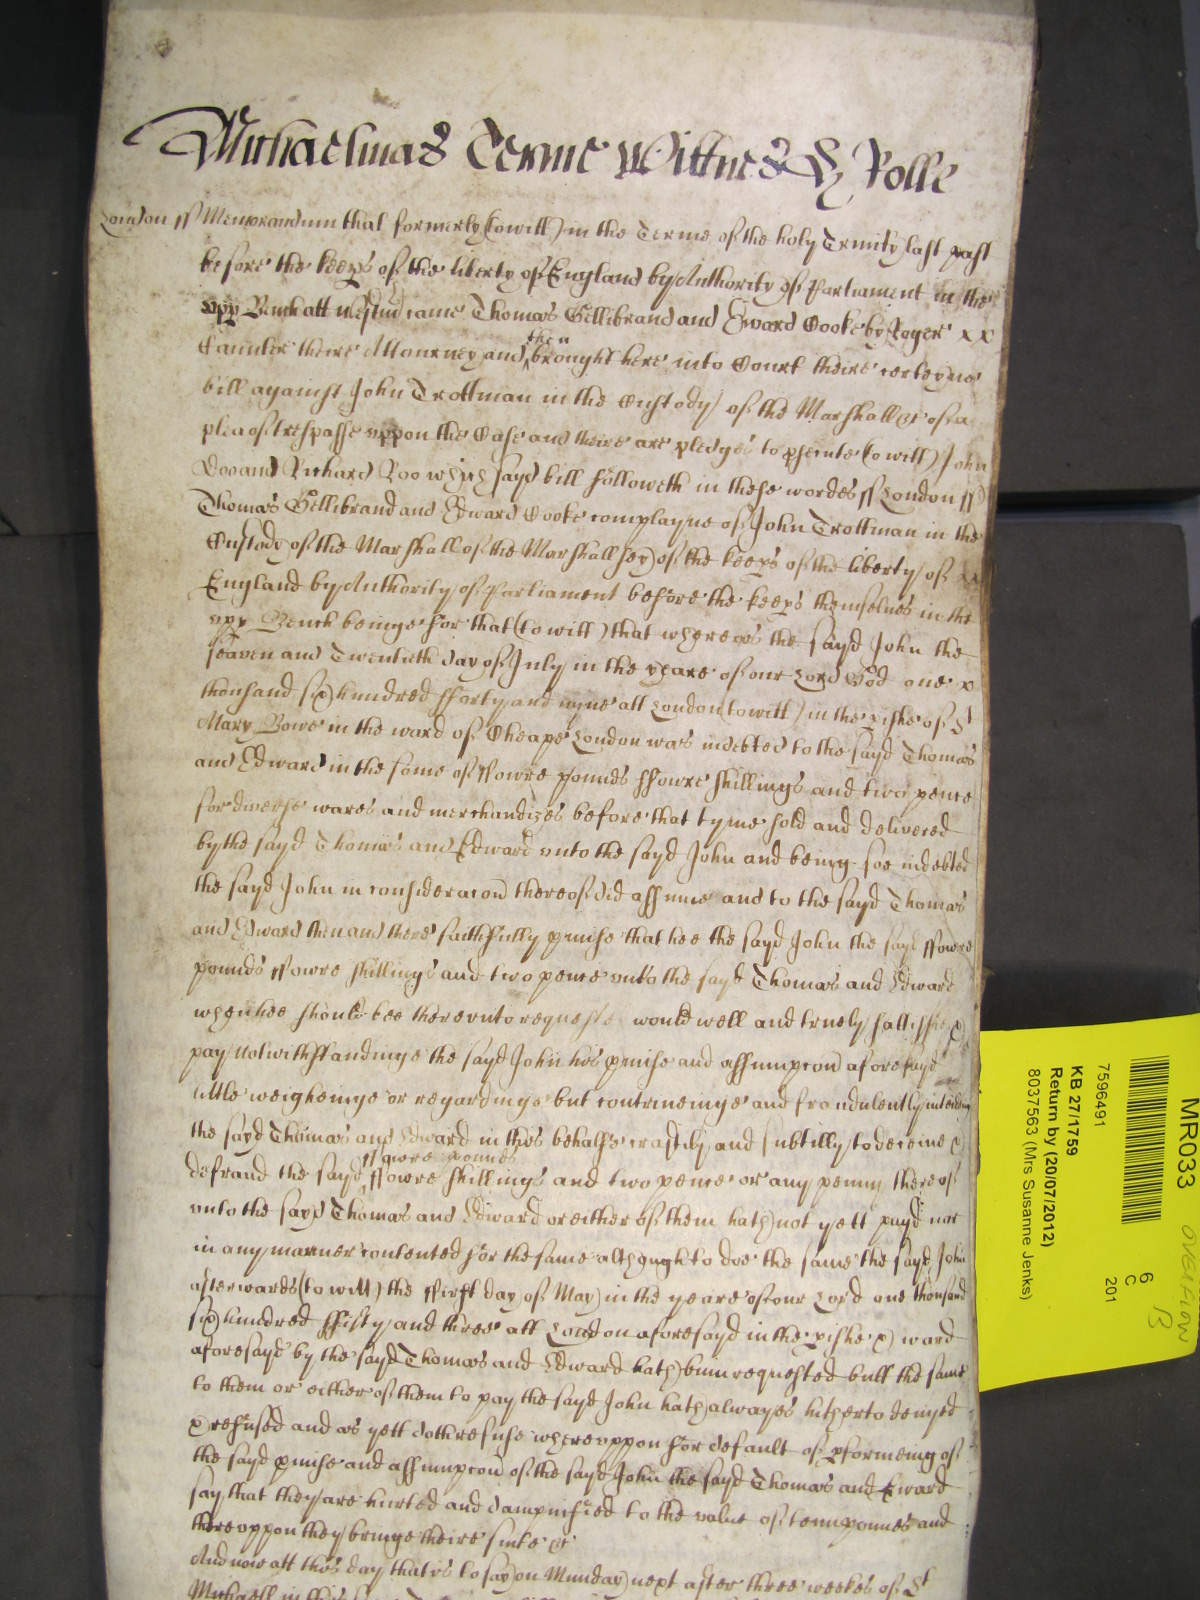 Michaelmas Terme Wittnes Hy Rolle
London ss Memorandum that formerly (to witt) in the Terme of the holy Trinity last past
before the keeps of the liberty of England by Authority of Parliament in the
upp Bench att came Thomas Gellibrand and Edward Cooke by Roger xx
theire Attourney and then brought here into Court theire certeyne
bill against John Trottman in the Custody of the Marshall &c of a
plea of trespasse uppon the Case and theire are pledges to psecute (to witt) John
Doo and Richard Roo wch sayd bill followeth in these wordes ss London ss
Thomas Gellibrand and Edward Cooke complayne of John Trottman in the
Custody of the Marshall of the Marshallsey of the keeps of the liberty of xx
England by Authority of Parliament before the keeps themselves in the
upp Bench beinge for that (to witt) that whereas the sayd John the
seaven and Twentieth day of July in the yeare of our Lord God one x
thousand six hundred fforty and nyne att London (to witt) in the pishe of St
Mary Bowe in the ward of Cheape London was indebted to the sayd Thomas
and Edward in the some of ffowre pounds ffowre shillings and two pence
for diverse wares and merchandizes before that tyme sold and delivered
by the sayd Thomas and Edward unto the sayd John and being soe indebted
the sayd John in consideracon thereof did assume and to the sayd Thomas
and Edward then and there faithfully pmise that hee the sayd John the sayd ffowre
pounds ffowre shillings and two pence unto the sayd Thomas and Edward
when hee should bee thereunto requeste would well and truely sattisfie &
pay Notwithstandinge the sayd John his pmise and assumpcon aforesayd
little weigheinge or regardinge but contriveinge and fraudulently intending
the sayd Thomas and Edward in this behalfe craftily and subtilly to deceive &
defraud the sayd ffowre pounds ffowre shillings and two pence or any penny thereof
unto the sayd Thomas and Edward or either of them hath not yett payd nor
in any manner contented for the same although to doe the same the sayd John
afterwards (to witt) the ffirst day of May in the yeare of our Lord one thousand
six hundred ffifty and three att London aforesayd in the pishe & ward
aforesayd by the sayd Thomas and Edward hath binn requested butt the same
to them or either of them to pay the sayd John hath alwayes hitherto denyed
& refused and as yett doth refuse whereuppon for default of pformeing of
the sayd pmise and assumpcon of the sayd John the sayd Thomas and Edward
say that they are hurted and dampnified to the value of tenn pounds and
thereuppon they bringe theire suite &c
And now att this day that is to say on Munday next after three weekes of St
Michaell in this
MR033
7596491
6
C
201
KB 27/1759
Return by (20/07/2012)
8037563 (Mrs Susanne Jenks)
OVERFLOW